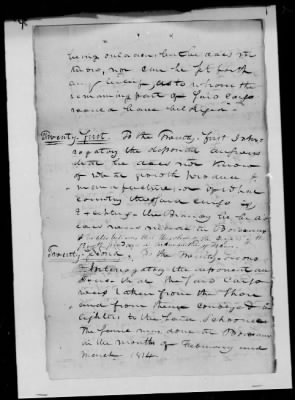 being onboard, but he does not
know, nor can he set forth
any belief as to whom the
remaining part of said cargo
would have belonged
Twenty first. To the Twenty first Inter
rogatory the deponent answers
that he does not know
of what growth produce &
manufacture, or of what
country the said cargo is
Twenty Second, To the Twenty Second
Interrogatory the deponent an
swers that all the said Cargo
was taken from the Shore
and from thence conveyed in
lighters to the said Schooner
The same was done at Bordeaux
in the months of February and
March 1814